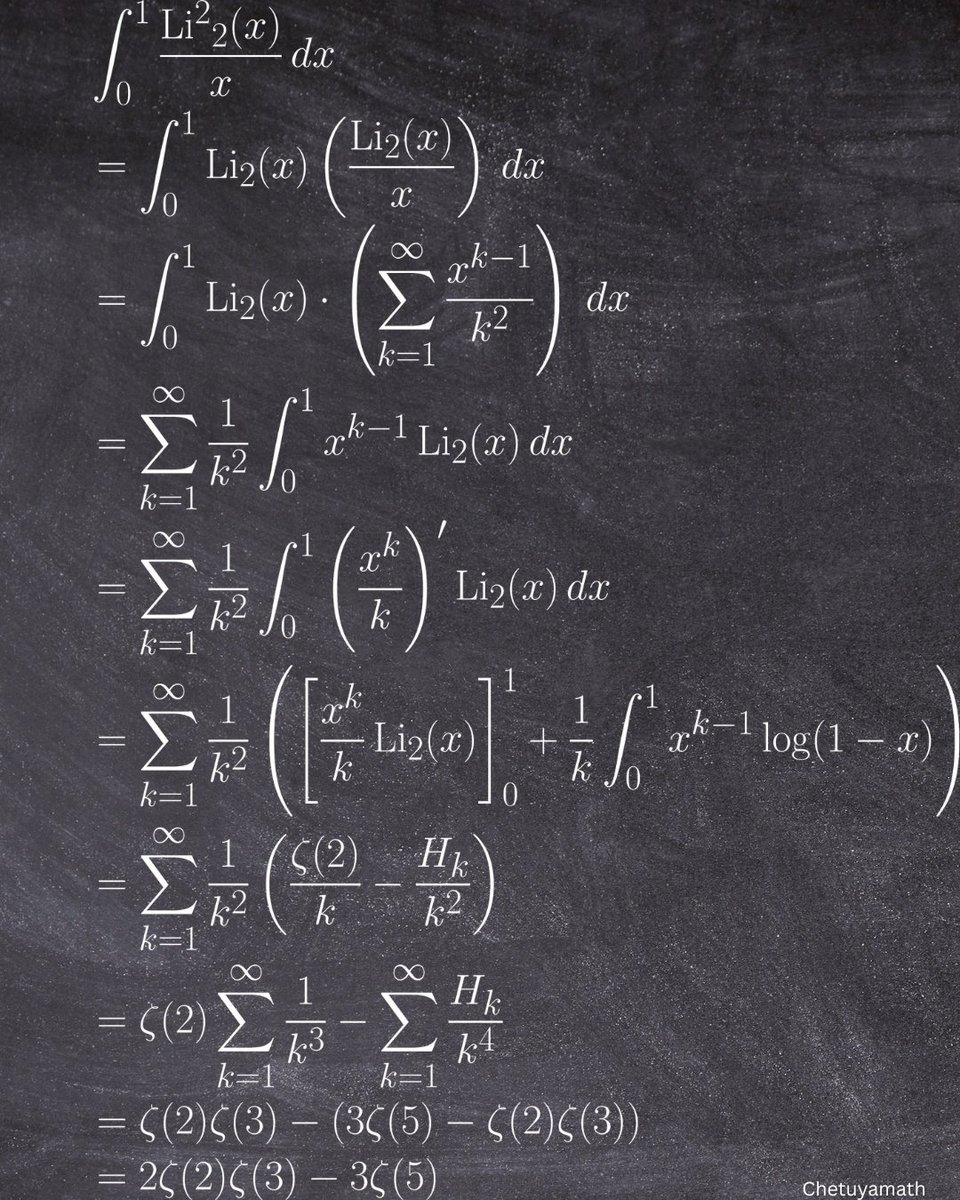 \int_0^1 \frac{\text{Li}^2{}_2(x)}{x} \, dx
= \int_0^1 \text{Li}_2(x) \left( \frac{\text{Li}_2(x)}{x} \right) \, dx
= \int_0^1 \text{Li}_2(x) \cdot \left( \sum_{k=1}^{\infty} \frac{x^{k-1}}{k^2} \right) \, dx
= \sum_{k=1}^{\infty} \frac{1}{k^2} \int_0^1 x^{k-1} \, \text{Li}_2(x) \, dx
= \sum_{k=1}^{\infty} \frac{1}{k^2} \int_0^1 \left( \frac{x^k}{k} \right)' \text{Li}_2(x) \, dx
= \sum_{k=1}^{\infty} \frac{1}{k^2} \left( \left[ \frac{x^k}{k} \text{Li}_2(x) \right]_0^1 + \frac{1}{k} \int_0^1 x^{k-1} \log(1-x) \right)
= \sum_{k=1}^{\infty} \frac{1}{k^2} \left( \frac{\zeta(2)}{k} - \frac{H_k}{k^2} \right)
= \zeta(2) \sum_{k=1}^{\infty} \frac{1}{k^3} - \sum_{k=1}^{\infty} \frac{H_k}{k^4}
= \zeta(2)\zeta(3) - (3\zeta(5) - \zeta(2)\zeta(3))
= 2\zeta(2)\zeta(3) - 3\zeta(5)
Chetuyamath